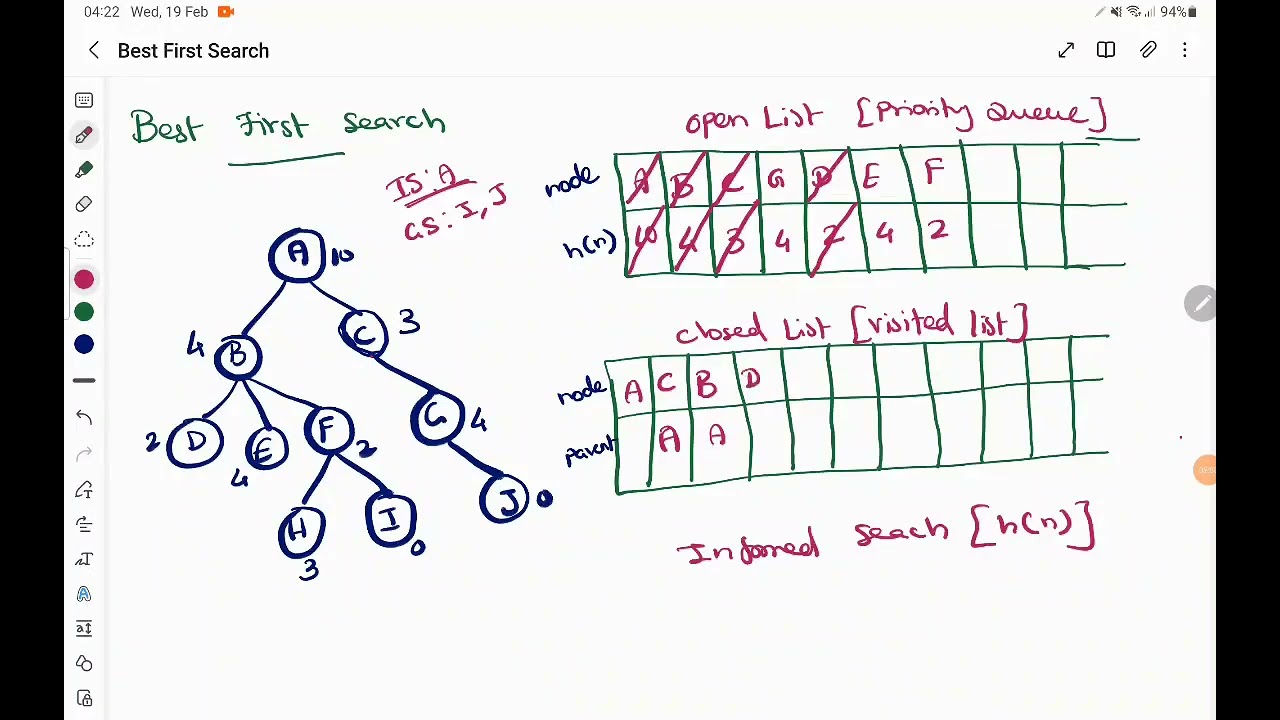 04:22 Wed, 19 Feb 94%
Best First Search
Best First Search
IS: A
GS: I, J
open List [Priority Queue]
node A B C G D E F
h(n) 10 4 3 4 2 4 2
closed List [visited list]
node A C B D
parent A A
Informed seach [h(n)]
A 10
C 3
4 B
2 D
E 4
F 2
G 4
H 3
I 0
J 0